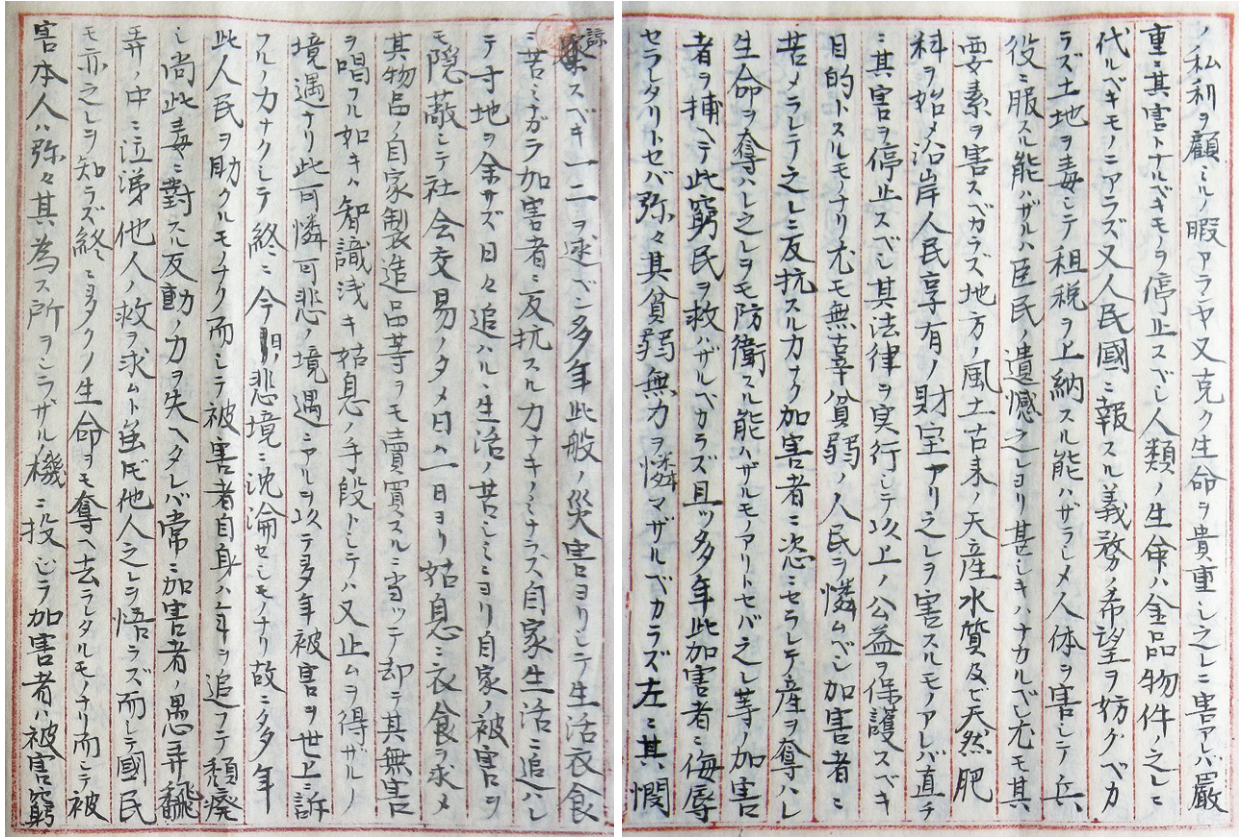 ノ私利ヲ顧ミルノ暇アラヤ又克ク生命ヲ貴重シ之レニ害アレバ嚴
重ニ其害トナルベキモノヲ停止スベシ人類ノ生命ハ金品物件ノ之レニ
代ルベキモノニアラズ又人民國ニ報スル義務ノ希望ヲ妨グベカ
ラズ土地ヲ毒シテ租税ヲ上納スル能ハザラシメ人体ヲ害シテ兵
役ニ服スル能ハザルハ臣民ノ遺憾之レヨリ甚シキハナカルベシ尤モ其
要素ヲ害スベカラズ地方ノ風土古来ノ天産水質及ビ天然肥
料ヲ始メ沿岸人民享有ノ財宝アリ之レヲ害スルモノアレバ直チ
ニ其害ヲ停止スベシ其法律ヲ実行シテ以上ノ公益ヲ保護スベキ
目的トスルモノナリ尤モ無辜貧弱ノ人民ヲ憐ムベシ加害者ニ
苦メラレテ之レニ反抗スル力ナク加害者ニ恣ニセラレテ産ヲ奪ハレ
生命ヲ奪ハレ之レヲモ防衛スル能ハザルモノアリトセバ之レ等ノ加害
者ヲ捕ヘテ此窮民ヲ救ハザルベカラズ且ツ多年此加害者ニ侮辱
セラレタリトセバ弥々其貧弱無力ヲ憐マザルベカラズ左ニ其憫
諒スベキ一二ヲ述ベン多年此般ノ災害ヨリシテ生活衣食
ニ苦ミナガラ加害者ニ反抗スル力ナキノミナラズ自家生活ニ追ハレ
テ寸地ヲ余サズ日々追ハルヽ生活ノ苦シミヨリ自家ノ被害ヲ
モ隠蔽シテ社会交易ノタメ日ハ一日ヨリ姑息ニ衣食ヲ求メ
其物品ノ自家製造品等ヲモ賣買スルニ当ッテ却テ其無害
ヲ唱フル如キハ智識浅キ姑息ノ手段トシテハ又止ムヲ得ザルノ
境遇ナリ此可憐可悲ノ境遇ニアルヲ以テ多年被害ヲ世上ニ訴
フルノ力ナクシテ終ニ今日ノ悲境ニ沈淪セシモノナリ故ニ多年
此人民ヲ助クルモノナク而シテ被害者自身ハ年ヲ追フテ頽癈
シ尚此毒ニ對スル反動ノ力ヲ失ヘタレバ常ニ加害者ノ愚弄飜
弄ノ中ニ泣涕他人ノ救ヲ求ムト虽ドモ他人之レヲ悟ラズ而シテ國民
モ亦之レヲ知ラズ終ニ多クノ生命ヲモ奪ヘ去ラレタルモノナリ而シテ被
害本人ハ弥々其為ス所ヲシラザル機ニ投ジラ加害者ハ被害窮